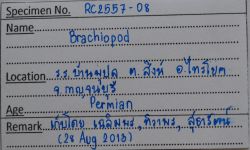 Specimen No. RC2557-08
Name
Brachiopod
Location ร.ร.บ้านพุปูล ต.สิงห์ อ.ไทรโยค
จ.กาญจนบุรี
Age Permian
Remark เก็บโดย เฉลิมพร, ทิวาพร, สุธารัตน์
(28 Aug 2013)